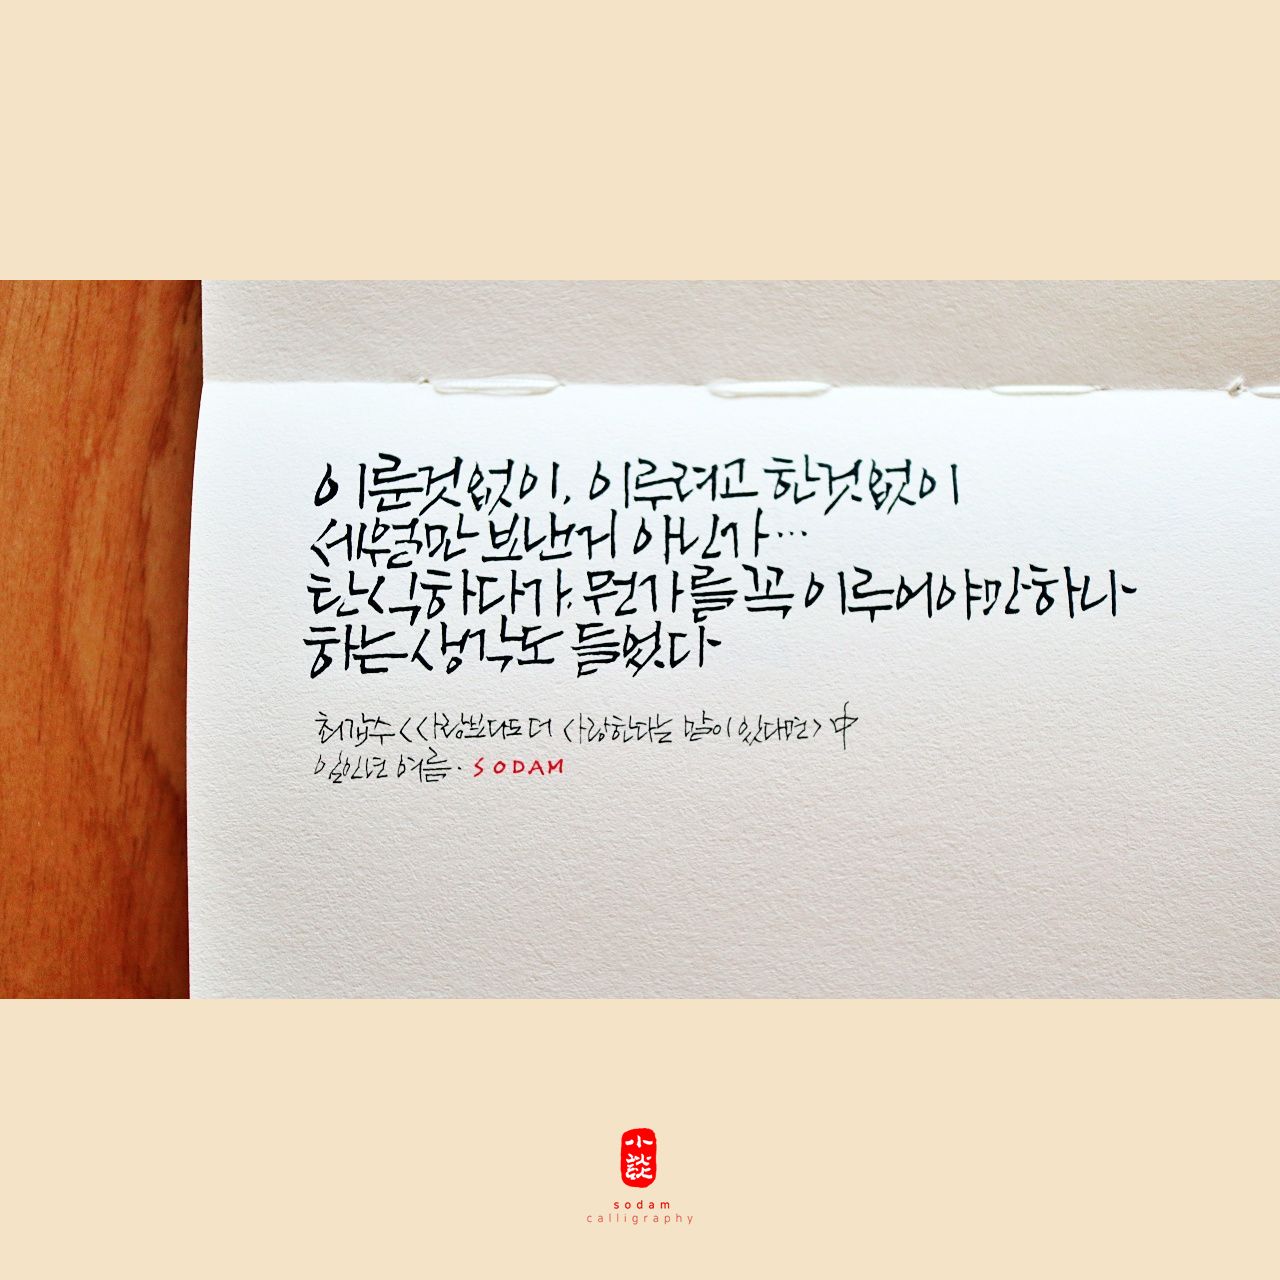 이룬것없이, 이루려고 한것없이
세월만 보낸게 아닌가…
탄식하다가, 뭔가를 꼭 이루어야만하나
하는 생각도 들었다
최갑수 <사랑보다도 더 사랑한다는 말이 있다면> 中
일인년 여름. SODAM
小談
sodam
calligraphy